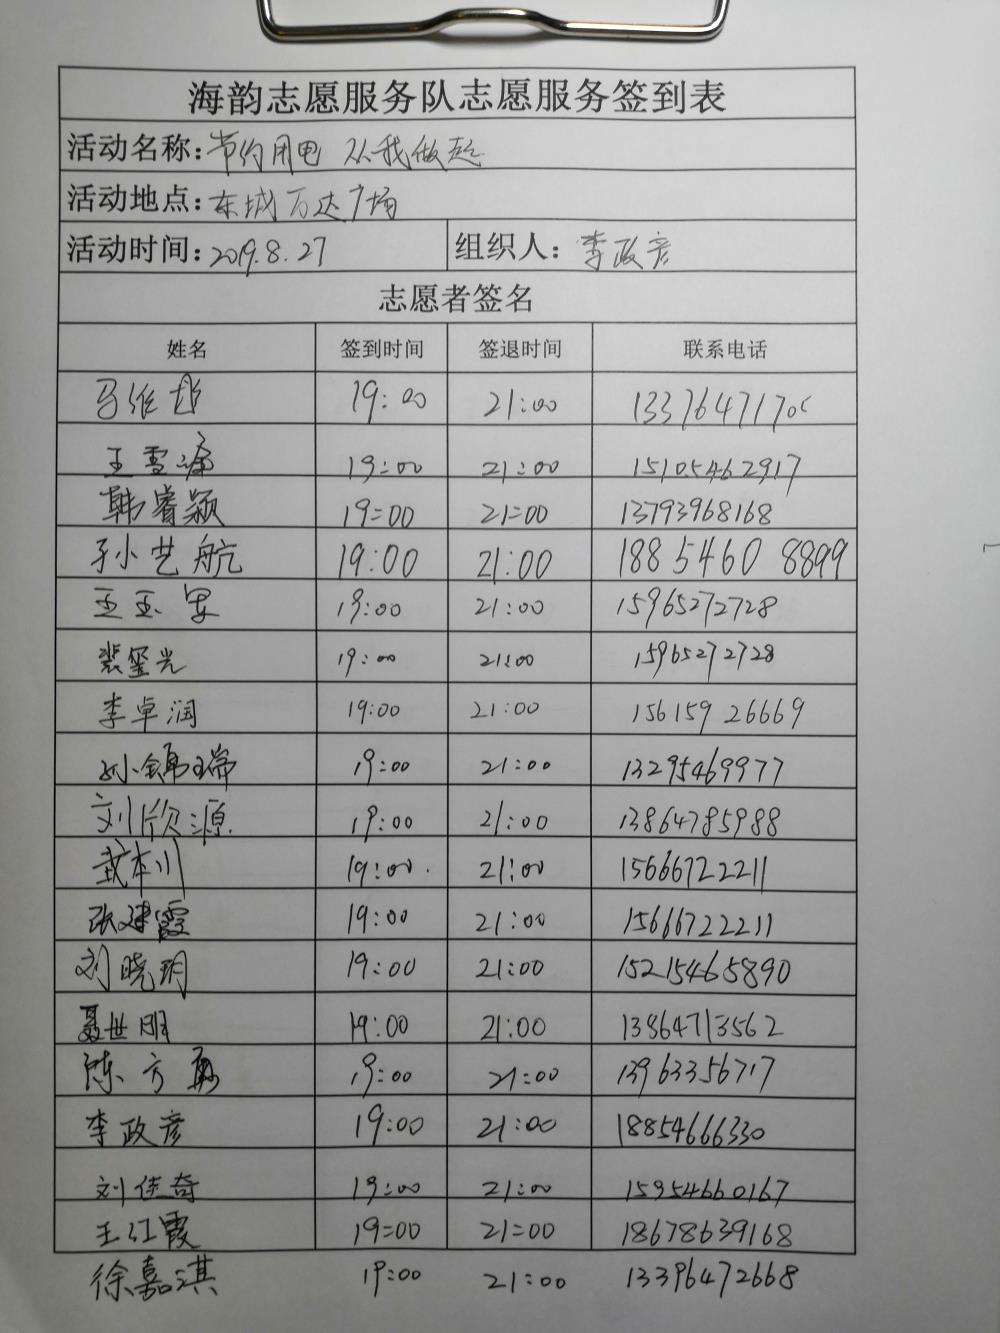 海韵志愿服务队志愿服务签到表
活动名称:节约用电 从我做起
活动地点:东城万达广场
活动时间:2019.8.27 组织人:李政彦
志愿者签名
姓名 签到时间 签退时间 联系电话
19:00 21:00
王雪涵 19:00 21:00 15105462917
韩睿颖 19:00 21:00 13793968168
孙小艺航 19:00 21:00 18854608899
王玉军 19:00 21:00 15965272728
裴玺光 19:00 21:00 15965272728
李卓润 19:00 21:00 15615926669
孙锦瑞 19:00 21:00 13295469977
刘欣源 19:00 21:00 13864785988
武本川 19:00 21:00 15666722211
张建霞 19:00 21:00 15666722211
刘晓玥 19:00 21:00 15215465890
聂世明 19:00 21:00 13864713562
陈方勇 19:00 21:00 13963356717
李政彦 19:00 21:00 18854666330
刘佳奇 19:00 21:00 15954660167
王红霞 19:00 21:00 18678639168
徐嘉淇 19:00 21:00 13396472668